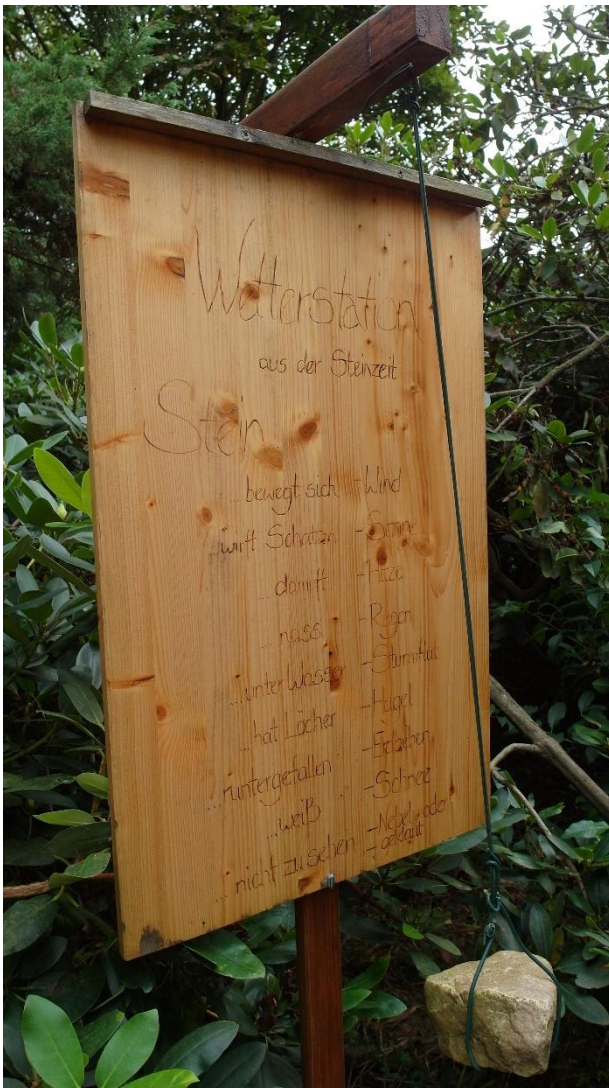 Wetterstation
aus der Steinzeit
Stein
bewegt sich - Wind
...wirft Schatten - Sonne
...dampft - Hitze
...nass - Regen
...unter Wasser - Sturmflut
...hat Löcher - Hagel
...runtergefallen - Erdbeben
...weiß - Schnee
...nicht zu sehen - Nebel oder
- geklaut